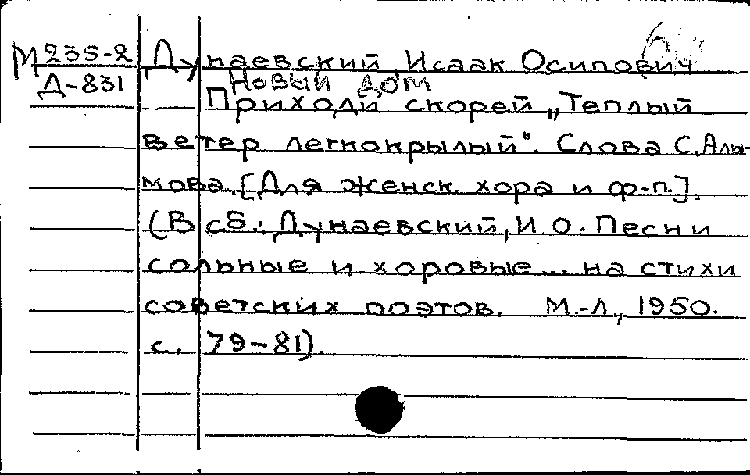 М 235-2 Дунаевский Исаак Осипович
Д-831 Новый дом
Приходи скорей „Теплый
ветер легкокрылый". Слова С. Алы-
мова. [Для женск. хора и ф-п.].
(В сб.: Дунаевский, И.О. Песни
сольные и хоровые... на стихи
советских поэтов. М.-Л., 1950.
с. 79-81).